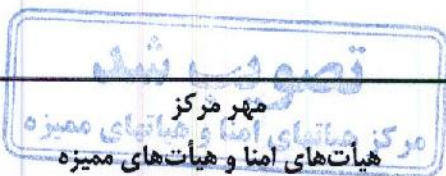 تصویب شد
مهر مرکز
مرکز هیاتهای امنا و هیاتهای ممیزه
هیأت‌های امنا و هیأت‌های ممیزه